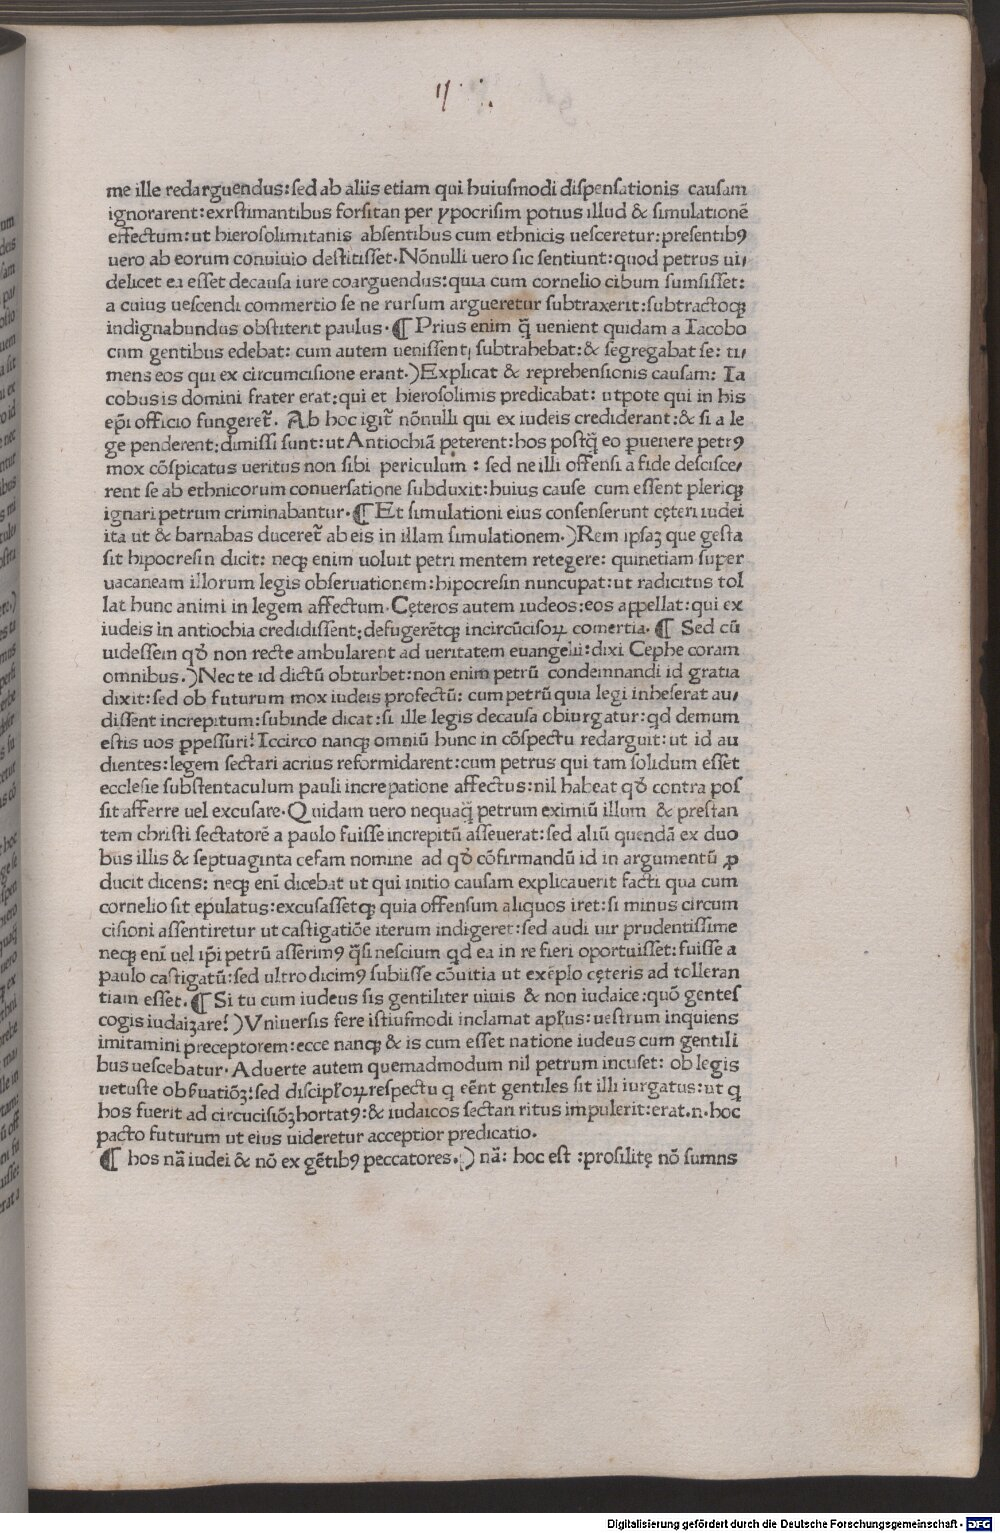 me ille redarguendus:sed ab aliis etiam qui huiusmodi dispensationis causam
ignorarent:exrstimantibus forsitan per ypocrisim potius illud & simulationē
effectum:ut hierosolimitanis absentibus cum ethnicis uesceretur:presentibꝰ
uero ab eorum conuiuio destitisset.Nōnulli uero sic sentiunt:quod petrus ui/
delicet ea esset decausa iure coarguendus:quia cum cornelio cibum sumsisset:
a cuius uescendi commertio se ne rursum argueretur subtraxerit:subtractoqꝫ
indignabundus obstiterit paulus.¶ Prius enim q̄ uenient quidam a Iacobo
cum gentibus edebat: cum autem uenissent, subtrahebat:& segregabat se: ti/
mens eos qui ex circumcisione erant.)Explicat & reprehensionis causam: Ia
cobus is domini frater erat:qui et hierosolimis predicabat: utpote qui in his
ep̄i officio fungeret̄. Ab hoc igit̄ nōnulli qui ex iudeis crediderant:& si a le
ge penderent:dimissi sunt:ut Antiochiā peterent:hos postq̄ eo ꝑuenere petrꝰ
mox cōspicatus ueritus non sibi periculum : sed ne illi offensi a fide descisce/
rent se ab ethnicorum conuersatione subduxit:huius cause cum essent pleriqꝫ
ignari petrum criminabantur.¶ Et simulationi eius consenserunt cęteri iudei
ita ut & barnabas duceret̄ ab eis in illam simulationem.)Rem ipsaꝫ que gesta
sit hipocresin dicit: neqꝫ enim uoluit petri mentem retegere: quinetiam super
uacaneam illorum legis obseruationem:hipocresin nuncupat:ut radicitus tol
lat hunc animi in legem affectum.Cęteros autem iudeos:eos appellat:qui ex
iudeis in antiochia credidissent:defugerētqꝫ incircūcisoꝝ comertia.¶ Sed cū
uidessem qđ non recte ambularent ad ueritatem euangelii:dixi Cephe coram
omnibus.)Nec te id dictū obturbet:non enim petrū condemnandi id gratia
dixit:sed ob futurum mox iudeis profectū: cum petrū quia legi inheserat au/
dissent increpitum:subinde dicat:si ille legis decausa obiurgatur:qd demum
estis uos ꝑpessuri?Iccirco nanqꝫ omniū hunc in cōspectu redarguit:ut id au
dientes:legem sectari acrius reformidarent:cum petrus qui tam solidum esset
ecclesie substentaculum pauli increpatione affectus:nil habeat qđ contra pos
sit afferre uel excusare.Quidam uero nequaq̄ petrum eximiū illum & prestan
tem christi sectatorē a paulo fuisse increpitū asseuerat:sed aliū quendā ex duo
bus illis & septuaginta cefam nomine ad qđ cōfirmandū id in argumentū ꝓ
ducit dicens: neqꝫ eni dicebat ut qui initio causam explicauerit facti qua cum
cornelio sit epulatus:excusassetqꝫ quia offensum aliquos iret:si minus circum
cisioni assentiretur ut castigatiōe iterum indigeret:sed audi uir prudentissime
neqꝫ eni uel ip̄i petrū asserimꝰ q̄si nescium qd ea in re fieri oportuisset:fuisse a
paulo castigatū:sed ultro dicimꝰ subiisse cōuitia ut exēplo cęteris ad tolleran
tiam esset.¶ Si tu cum iudeus sis gentiliter uiuis & non iudaice:quō gentes
cogis iudaizare?)Vniuersis fere istiusmodi inclamat aplus:uestrum inquiens
imitamini preceptorem:ecce nanqꝫ & is cum esset natione iudeus cum gentili
bus uescebatur.Aduerte autem quemadmodum nil petrum incuset: ob legis
uetuste obẛuatiōꝫ:sed discipl̄oꝝ respectu q eēnt gentiles sit illi iurgatus:ut q
hos fuerit ad circucisiōꝫ hortatꝰ:& iudaicos sectari ritus impulerit:erat.n.hoc
pacto futurum ut eius uideretur acceptior predicatio.
¶ hos nā iudei & nō ex gētibꝰ peccatores.) nā: hoc est :prosilitę nō sumns
Digitalisierung gefördert durch die Deutsche Forschungsgemeinschaft - DFG